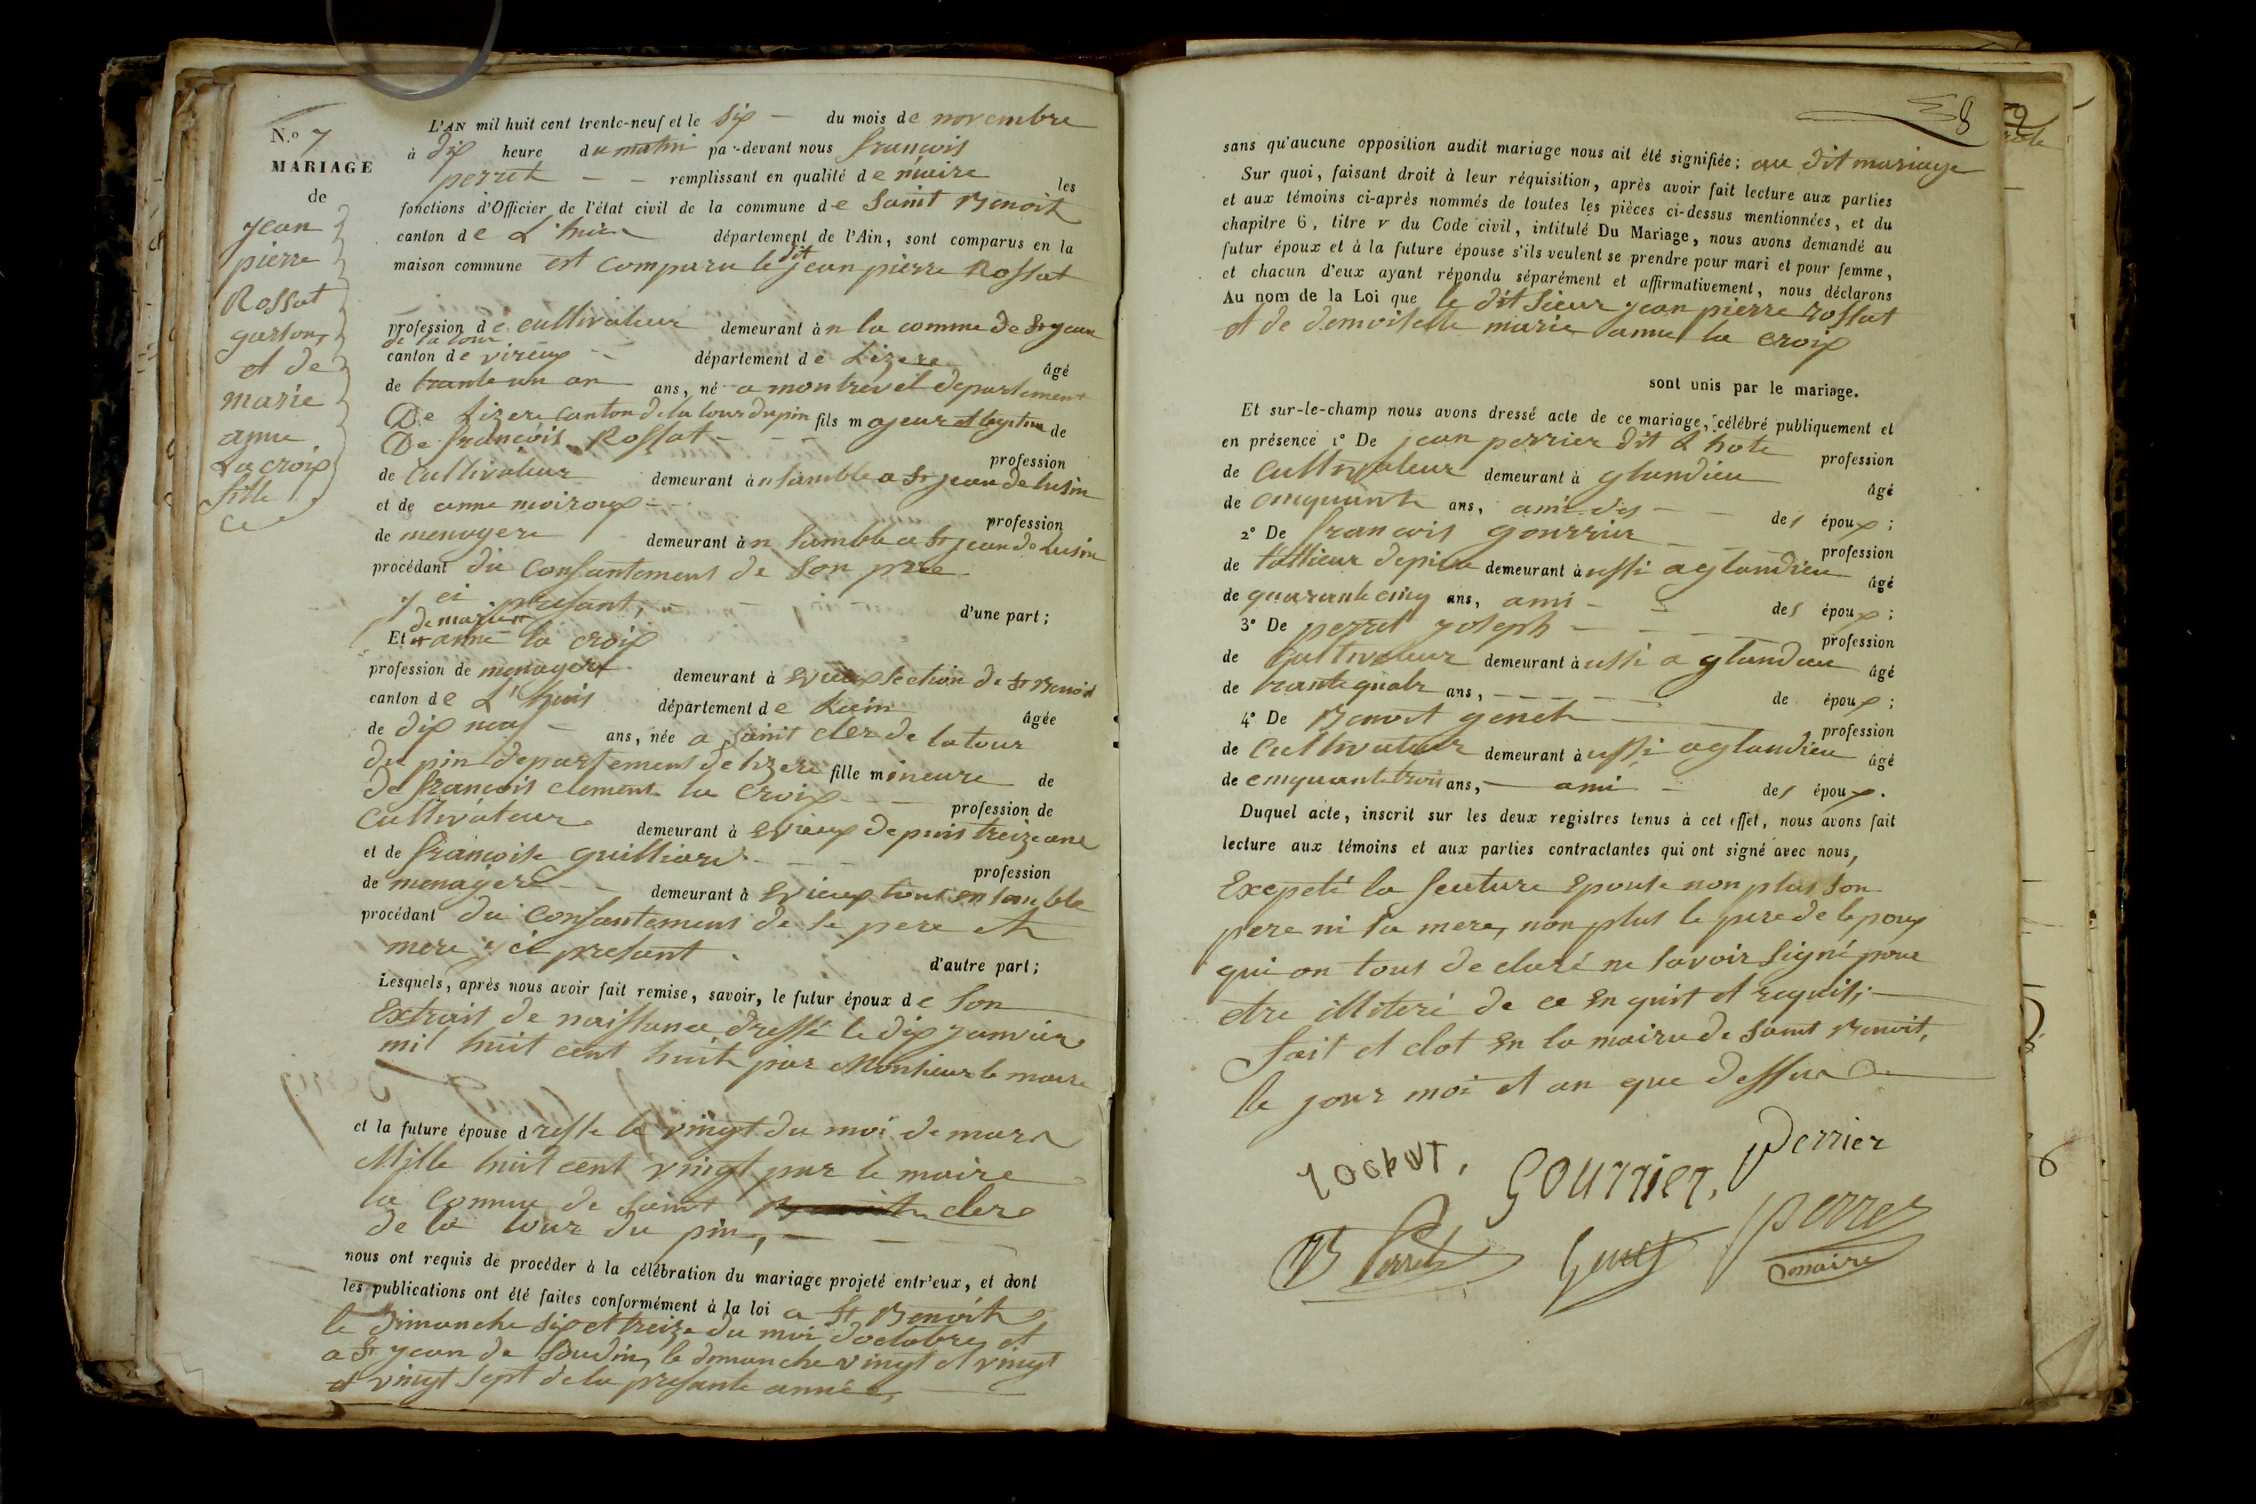 N.º 7
MARIAGE
de
jean
pierre
Rossat
garson,
et de
marie
anne
Lacroix
fille
L'AN mil huit cent trente-neuf et le six du mois de novembre
à dix heure du matin par-devant nous françois
perret remplissant en qualité de maire les
fonctions d'Officier de l'état civil de la commune de Saint Benoit
canton de L'huis département de l'Ain, sont comparus en la
maison commune est comparu le dit jean pierre Rossat
profession de cultivateur demeurant àn la comme de St jean
de la tour
canton de virieux département de Lizere âgé
de trante un an ans, né a montrevel departement
De Lizere canton de la tour du pin fils majeur et legitim de
De françois Rossat profession
de Cultivateur demeurant àn samble a St jean de lusin
et de anne moiroux profession
de menagere demeurant àn samble a St jean de lusin
procédant du consantement de Son pere
y ci presant, d'une part;
de marie
Et anne la croix
profession de menagere demeurant à Evieux section de St Benoit
canton de L'huis département de Lain âgée
de dix neuf ans, née a saint cler de la tour
du pin departement de lizere fille mineure de
De françois clement la croix profession de
Cultivateur demeurant à Evieux depuis treize ans
et de françoise guilliard profession
de menagere demeurant à Evieux tout en samble
procédant du Consantement de se pere et
mere y ci presant d'autre part;
Lesquels, après nous avoir fait remise, savoir, le futur époux de Son
Extrait de naissance dressé le dix janvier
mil huit cent huit par Monsieur le maire
et la future épouse dresse le vingt du moi de mars
Mille huit cent vingt par le maire
la commue de saint Benoit cler
de la tour du pin,
nous ont requis de procéder à la célébration du mariage projeté entr'eux, et dont
les publications ont été faites conformément à la loi a St Benoit
le Dimanche six et treize du moi doctobre, et
a St jean de Soudin, le dimanche vingt et vingt
et vingt sept de la presante année,
8
sans qu'aucune opposition audit mariage nous ait été signifiée; au dit mariage
Sur quoi, faisant droit à leur réquisition, après avoir fait lecture aux parties
et aux témoins ci-après nommés de toutes les pièces ci-dessus mentionnées, et du
chapitre 6, titre v du Code civil, intitulé Du Mariage, nous avons demandé au
futur époux et à la future épouse s'ils veulent se prendre pour mari et pour femme,
et chacun d'eux ayant répondu séparément et affirmativement, nous déclarons
Au nom de la Loi que le dit Sieur jean pierre rossat
et de demoiselle marie anne la croix
sont unis par le mariage.
Et sur-le-champ nous avons dressé acte de ce mariage, célébré publiquement et
en présence 1° De jean perrier dit L'hote profession
de Cultivateur demeurant à glandieu âgé
de cinquante ans, ami des des époux;
2° De francois gourrier profession
de tallieur depiere demeurant à ussi a glandieu âgé
de quarante cinq ans, ami des époux;
3° De perret joseph profession
de Cultivateur demeurant à ussi a glandieu âgé
de trante quatr ans, de époux;
4° De Benoit genet profession
de Cultivateur demeurant à ussi a glandieu âgé
de cinquante trois ans, ami des époux.
Duquel acte, inscrit sur les deux registres tenus à cet effet, nous avons fait
lecture aux témoins et aux parties contractantes qui ont signé avec nous,
Excpeté la feuture Epouse non plus son
pere ni sa mere, non plus le pere de lepoux
qui on tous declaré ne savoir signé pour
etre illiteré de ce enquit et requit;
fait et clot en la mairie de saint Benoit,
le jour moi et an que dessus
Gourrier, perrier
Perret Genet perret
maire